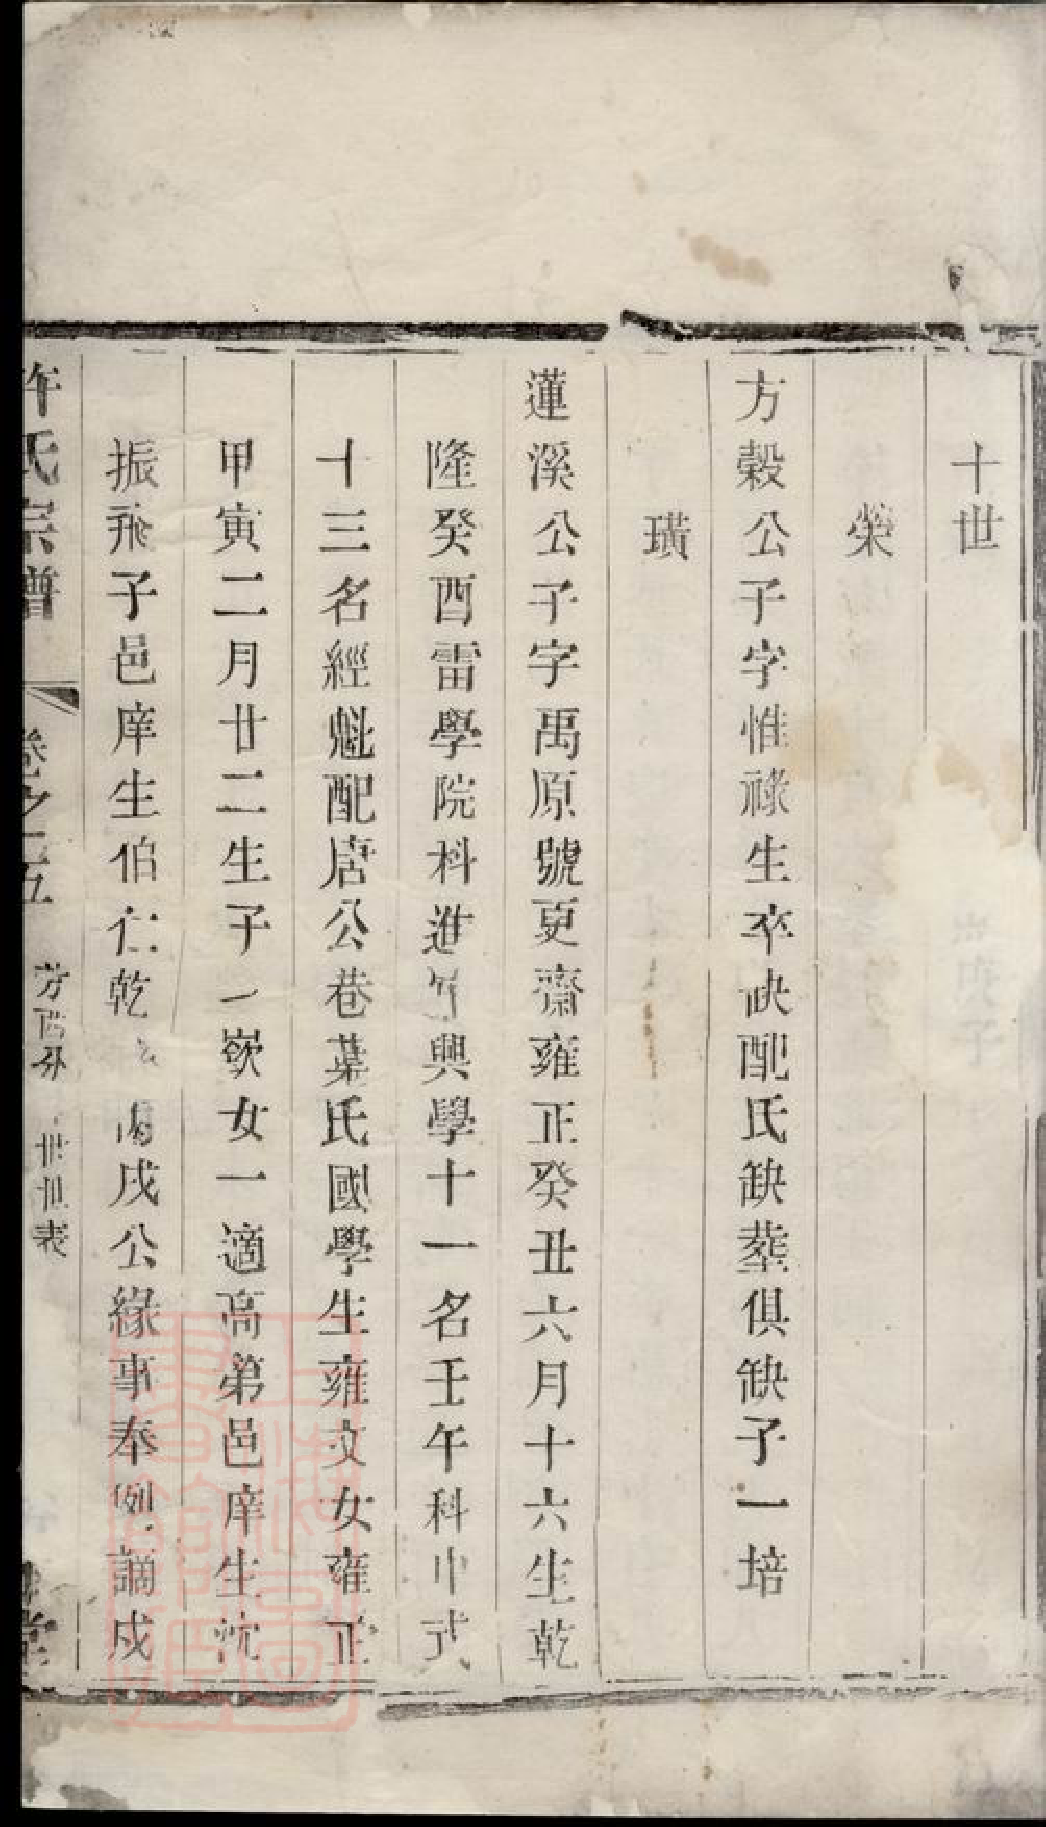 十世
榮
方穀公子字惟祿生卒缺配氏缺葬俱缺子一培
璜
蓮溪公子字禹原號更齋雍正癸丑六月十六生乾
隆癸酉雷學院科進 興學十一名壬午科中式
十三名經魁配唐公巷葉氏國學生雍文女雍正
甲寅二月廿二生子一嶔女一適高弟邑庠生沈
振飛子邑庠生伯仁乾 丙戌公緣事奉例謫戍
許氏宗譜 卷之 五 世世表 堂
上海圖書館藏